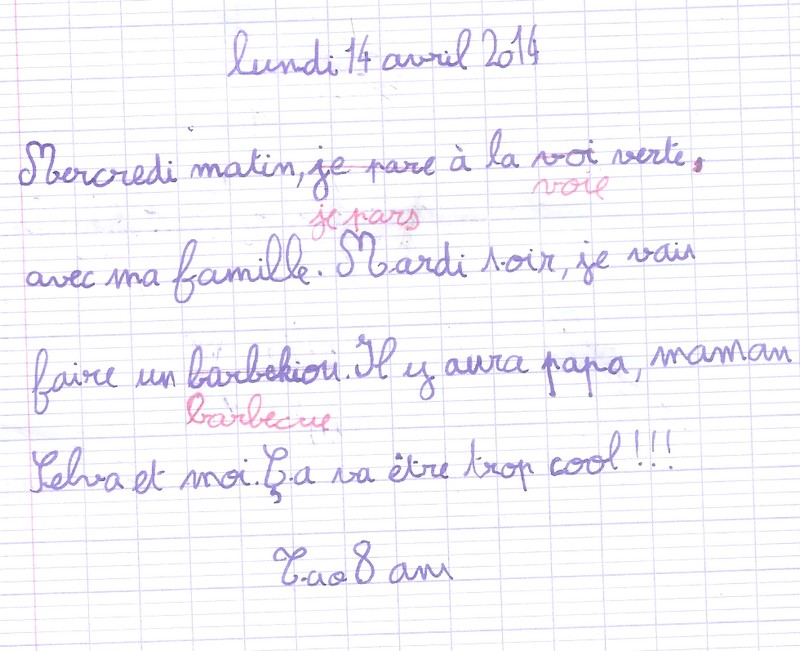 lundi 14 avril 2014
Mercredi matin, je pare à la voi verte,
voie
je pars
avec ma famille. Mardi soir, je vais
faire un barbekiou. Il y aura papa, maman
barbecue
Selva et moi. Ça va être trop cool !!!
Tao 8 ans